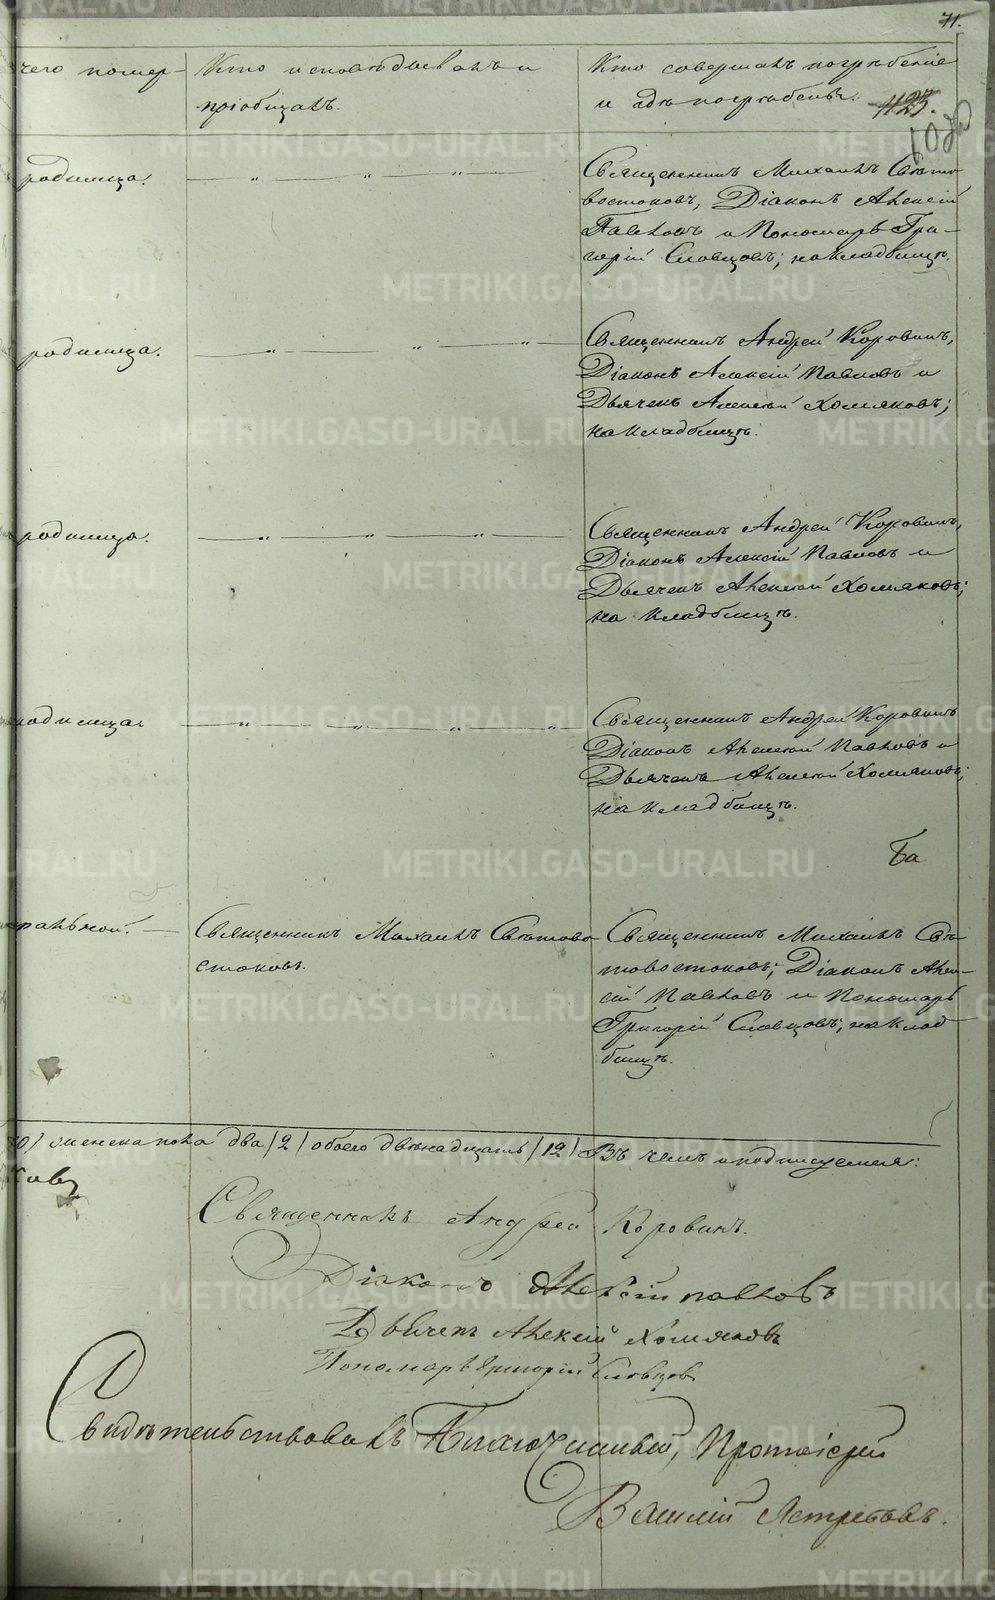 71.
чего помер-
Кто исповѣдывалъ и
пріобщалъ.
Кто совершалъ погребеніе
и гдѣ погребены.
1125.
родимца.
Священникъ Михаилъ Свѣто-
востоковъ, Діаконъ Алексій
Павловъ и Пономарь Гри-
горій Словцовъ; на кладбищѣ.
родимца.
Священникъ Андрей Коровинъ,
Діаконъ Алексій Павловъ и
Дьячекъ Алексѣй Хомяковъ;
на кладбищѣ.
родимца.
Священникъ Андрей Коровинъ,
Діаконъ Алексій Павловъ и
Дьячекъ Алексѣй Хомяковъ;
на кладбищѣ.
родимца
Священникъ Андрей Коровинъ
Діаконъ Алексѣй Павловъ и
Дьячекъ Алексѣй Хомяковъ;
на кладбищѣ.
Священникъ Михаилъ Свѣтово-
стоковъ.
Священникъ Михаилъ Свѣ-
товостоковъ; Діаконъ Алек-
сій Павловъ и Пономарь
Григорій Словцовъ; на клад-
бищѣ.
женска пола два /2/ обоего двѣнадцать /12/ Въ чемъ и подписуемся:
Священникъ Андрей Коровинъ.
Діаконъ Алексій Павловъ
Дьячекъ Алексій Хомяковъ
Пономарь Григорій Словцовъ
Свидѣтельствовалъ Благочинный, Протоіерей
Василій Ястребовъ.
METRIKI.GASO-URAL.RU